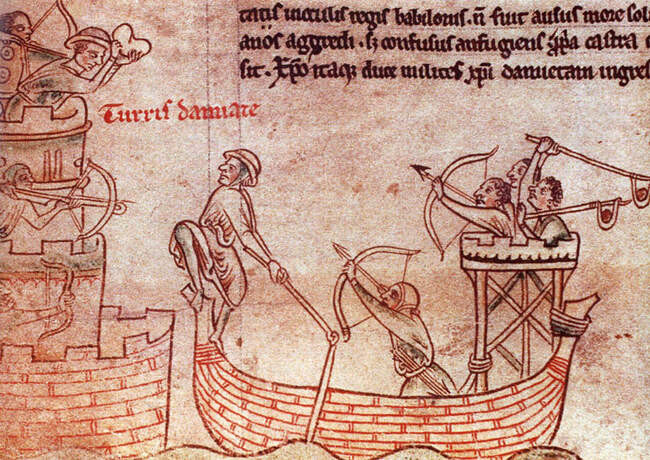 tatis in oculis regis babilonis. n̄ fuit ausus more sol
anos aggredi. sꝫ confusus aufugiens castra
sit. Xp̄o itaq; duce milites xp̄i damietam ingres
Turris damiate